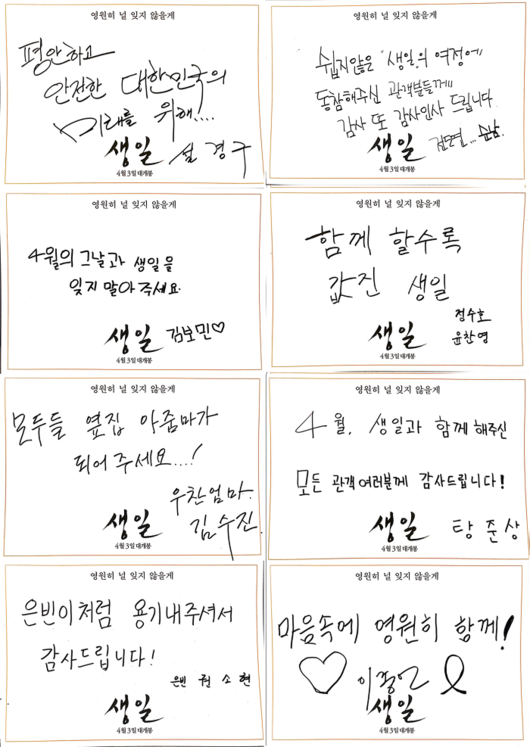 영원히 널 잊지 않을게
평안하고
안전한 대한민국의
미래를 위해....
생일 설 경 구
4월 3일 대개봉
영원히 널 잊지 않을게
쉽지않은 "생일의 여정에
동참해주신 관객분들께
감사 또 감사인사 드립니다.
생일
4월 3일 대개봉
영원히 널 잊지 않을게
4월의 그날과 생일을
잊지 말아주세요.
생일 김보민♡
4월 3일 대개봉
영원히 널 잊지 않을게
함께 할수록
값진 생일
정수호
생일 윤찬영
4월 3일 대개봉
영원히 널 잊지 않을게
모두들 옆집 아줌마가
되어 주세요...!
우찬엄마.
생일 김수진.
4월 3일 대개봉
영원히 널 잊지 않을게
4월. 생일과 함께 해주신
모든 관객여러분께 감사드립니다!
생일 탕 준 상
4월 3일 대개봉
영원히 널 잊지 않을게
은빈이처럼 용기내주셔서
감사드립니다!
은빈 권 소 현
생일
4월 3일 대개봉
영원히 널 잊지 않을게
마음속에 영원히 함께!
생일
4월 3일 대개봉